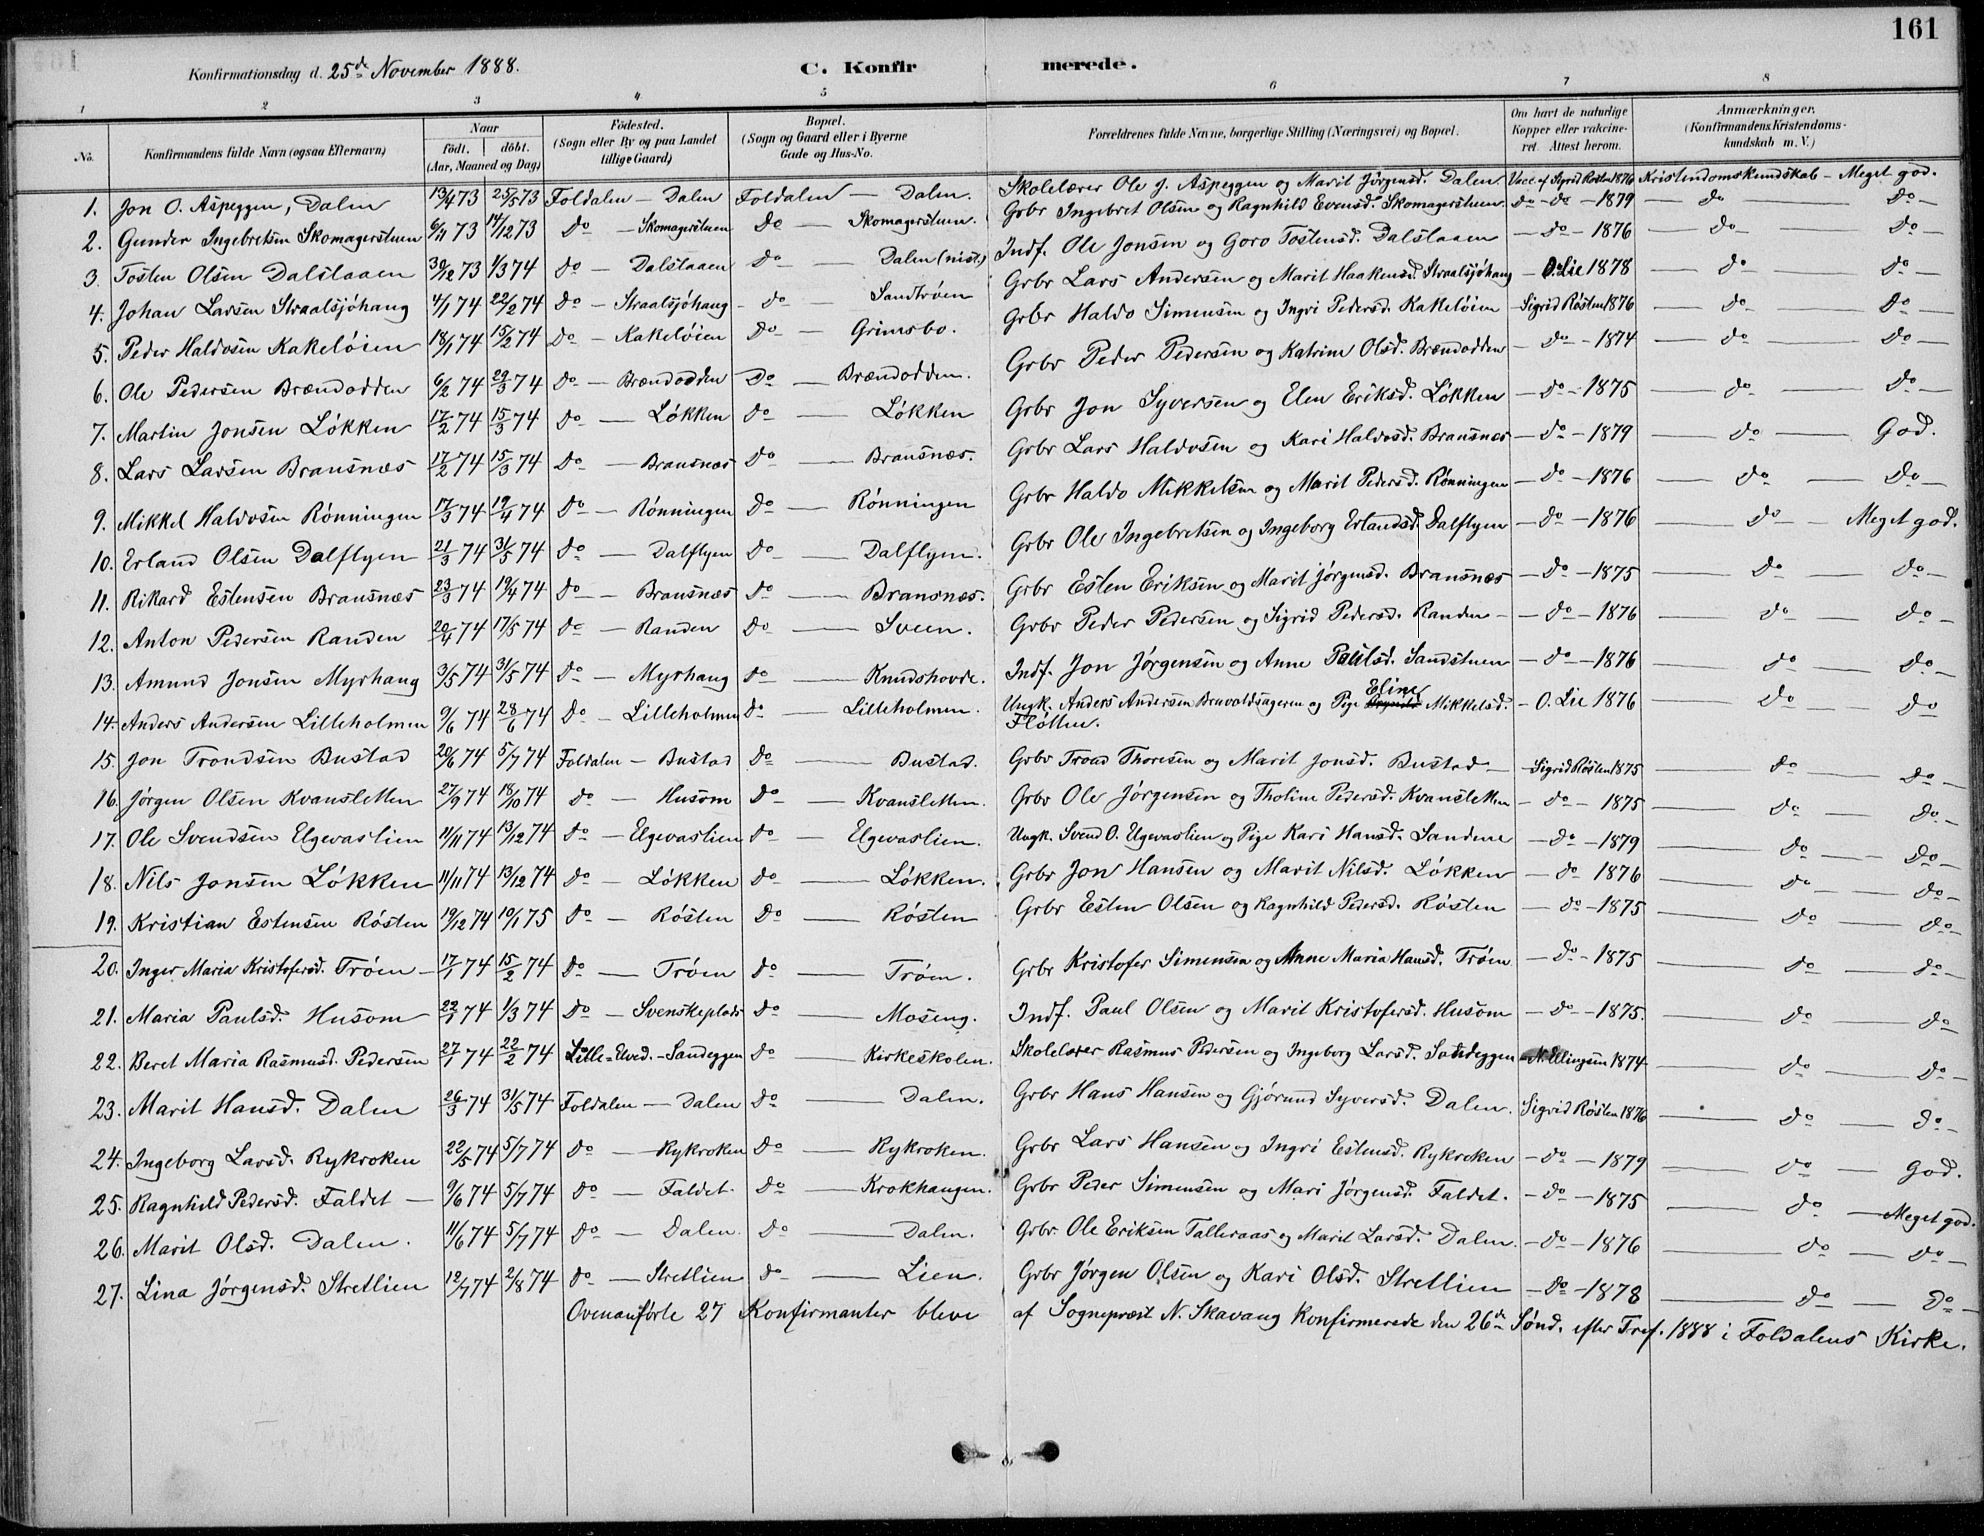 161
Konfirmationsdag d. 25de November 1888. C. Konfirmerede.
1 2 3 4 5 6 7 8
No. Konfirmandens fulde Navn (ogsaa Efternavn) Naar født. døbt. (Aar, Maaned og Dag) Fødested. (Sogn eller By og paa Landet tillige Gaard) Bopæl. (Sogn og Gaard eller i Byerne Gade og Hus-No. Forældrenes fulde Navne, borgerlige Stilling (Næringsvei) og Bopæl. Om havt de naturlige Kopper eller vakcineret. Attest herom. Anmærkninger. (Konfirmandens Kristendomskundskab m. V.)
1. Jon O. Aspeggen, Dalen 13/4 73 25/5 73 Foldalen — Dalen Foldalen — Dalen. Skolelærer Ole J. Aspeggen og Marit Jørgensd. Dalen Vacc. af Sigrid Røsten 1876 Kristendomskundskab — Meget god.
2. Gunder Ingebretsen Skomagerstuen 6/11 73 14/12 73 do — Skomagerstuen do — Skomagerstuen. Grbr Ingebret Olsen og Ragnhild Evensd. Skomagerstuen do — do — 1879 — do — do —
3. Tosten Olsen Dalslaaen 30/12 73 1/3 74 do — Dalslaaen do — Dalen (nist.) Indf. Ole Jonsen og Goro Tostensd. Dalslaaen — do — 1876 — do — do —
4. Johan Larsen Straalsjøhaug 4/1 74 22/2 74 do — Straalsjøhaug — do — Sandtrøen Grbr Lars Andersen og Marit Haakensd. Straalsjøhaug — O. Lie 1878 — do — do —
5. Peder Haldosen Kakeløien 18/1 74 15/2 74 do — Kakeløien do — Grimsbo. Grbr Haldo Simensen og Ingri Pedersd. Kakeløien Sigrid Røsten 1876 — do — do —
6. Ole Pedersen Brændodden 6/2 74 29/3 74 do — Brændodden do — Brændodden. Grbr Peder Pedersen og Katrine Olsd. Brændodden — do — 1874 — do — do —
7. Martin Jonsen Løkken 17/2 74 15/3 74 do — Løkken do — Løkken Grbr Jon Syversen og Elen Eriksd. Løkken — do — 1875 — do — do —
8. Lars Larsen Bransnæs 17/2 74 15/3 74 do — Bransnæs do — Bransnæs. Grbr Lars Haldosen og Kari Haldosd. Bransnæs — do — 1879 — do — God.
9. Mikkel Haldosen Rønningen 17/3 74 19/4 74 do — Rønningen do — Rønningen Grbr Haldo Mikkelsen og Marit Pedersd. Rønningen — do — 1876 — do — do —
10. Erland Olsen Dalflyen 21/3 74 31/5 74 do — Dalflyen do — Dalflyen. Grbr Ole Ingebretsen og Ingeborg Erlandsd. Dalflyen — do — 1876 — do — Meget god.
11. Rikard Estensen Bransnæs 23/3 74 19/4 74 do — Bransnæs do — Bransnæs. Grbr Esten Eriksen og Marit Jørgensd. Bransnæs — do — 1875 — do — do —
12. Anton Pedersen Randen 20/4 74 17/5 74 do — Randen do — Sveen. Grbr Peder Pedersen og Sigrid Pedersd. Randen — do — 1876 — do — do —
13. Amund Jonsen Myrhaug 3/5 74 31/5 74 do — Myrhaug do — Knudshovde. Indf. Jon Jørgensen og Anne Paulsd. Sandstuen — do — 1876 — do — do —
14. Anders Andersen Lilleholmen 9/6 74 28/6 74 do — Lilleholmen do — Lilleholmen. Ungk. Anders Andersen Bruvoldsageren og Pige Eline Mikkelsd. Fløtten. — O. Lie 1876 — do — do
15. Jon Trondsen Bustad 20/6 74 5/7 74 Foldalen — Bustad do — Bustad. Grbr Trond Thoresen og Marit Jonsd. Bustad — Sigrid Røsten 1875 — do — do —
16. Jørgen Olsen Kvansletten 27/9 74 18/10 74 do — Husom do — Kvansletten. Grbr Ole Jørgensen og Tholine Pedersd. Kvansletten — do — 1875 — do — do —
17. Ole Svendsen Elgevaslien 11/11 74 13/12 74 do — Elgevaslien do — Elgevaslien. Ungk. Svend O. Elgevaslien og Pige Kari Hansd. Sandene — do — 1879 — do — do —
18. Nils Jonsen Løkken 11/11 74 13/12 74 do — Løkken do — Løkken. Grbr Jon Hansen og Marit Nilsd. Løkken — do — 1876 — do — do —
19. Kristian Estensen Røsten 19/12 74 10/1 75 do — Røsten do — Røsten Grbr Esten Olsen og Ragnhild Pedersd. Røsten — do — 1875 — do — do —
20. Inger Maria Kristofersd. Trøen — 17/1 74 15/2 74 do — Trøen do — Trøen. Grbr Kristofer Simensen og Anne Maria Hansd. Trøen — do — 1875 — do — do —
21. Maria Paulsd. Husom 22/1 74 1/3 74 do — Svenskeplads do — Moseng. Indf. Paul Olsen og Marit Kristofersd. Husom — do — 1875. — do — do —
22. Beret Maria Rasmusd. Pedersen 27/1 74 22/2 74 Lille-Elved. — Sandeggen do — Kirkeskolen. Skolelærer Rasmus Pedersen og Ingeborg Larsd. Sandeggen — N. Ellingsen 1874 — do — do —
23. Marit Hansd. Dalen 26/3 74 31/5 74 Foldalen — Dalen do — Dalen. Grbr Hans Hansen og Gjørund Syversd. Dalen. Sigrid Røsten 1876 — do — do —
24. Ingeborg Larsd. Rykroken 22/5 74 5/7 74 do — Rykroken do — Rykroken. Grbr Lars Hansen og Ingri Estensd. Rykroken — do — 1879 — do — God.
25. Ragnhild Pedersd. Faldet — 9/6 74 5/7 74 do — Faldet. do — Krokhaugen. Grbr Peder Simensen og Mari Jørgensd. Faldet. — do — 1875 — do — Meget god.
26. Marit Olsd. Dalen. 11/6 74 5/7 74 do — Dalen. do — Dalen. Grbr. Ole Eriksen Talleraas og Marit Larsd. Dalen. — do — 1876 — do — do —
27. Lina Jørgensd. Stretlien 12/7 74 2/8 74 do — Stretlien do — Lien. Grbr Jørgen Olsen og Kari Olsd. Stretlien — do — 1878 — do — do —
Ovenanførte 27 Konfirmanter bleve af Sognepræst N. Skavang konfirmerede den 26de Sønd. efter Tref. 1888 i Foldalens Kirke.